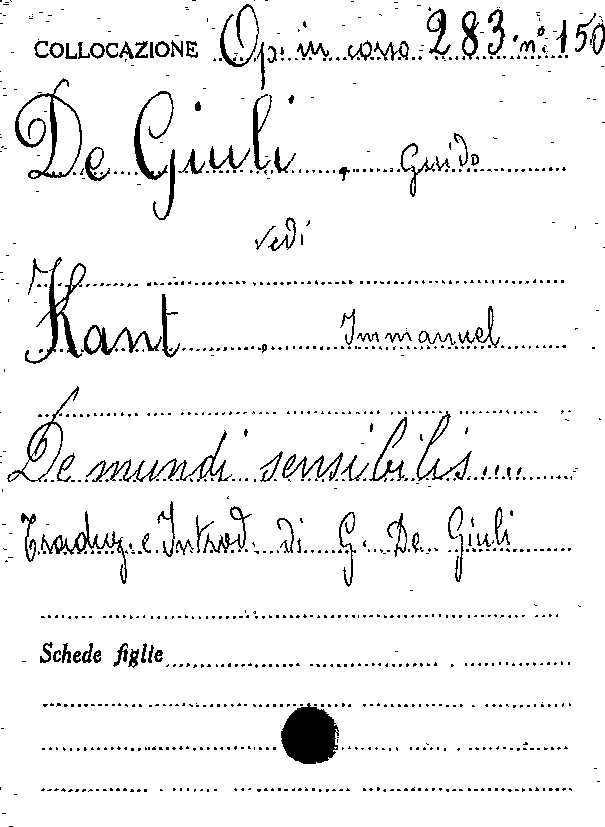 COLLOCAZIONE Op. in corso 283. n° 150
De Giuli, Guido
vedi
Kant, Immanuel
De mundi sensibilis....
Traduz. e Introd. di G. De Giuli
Schede figlie